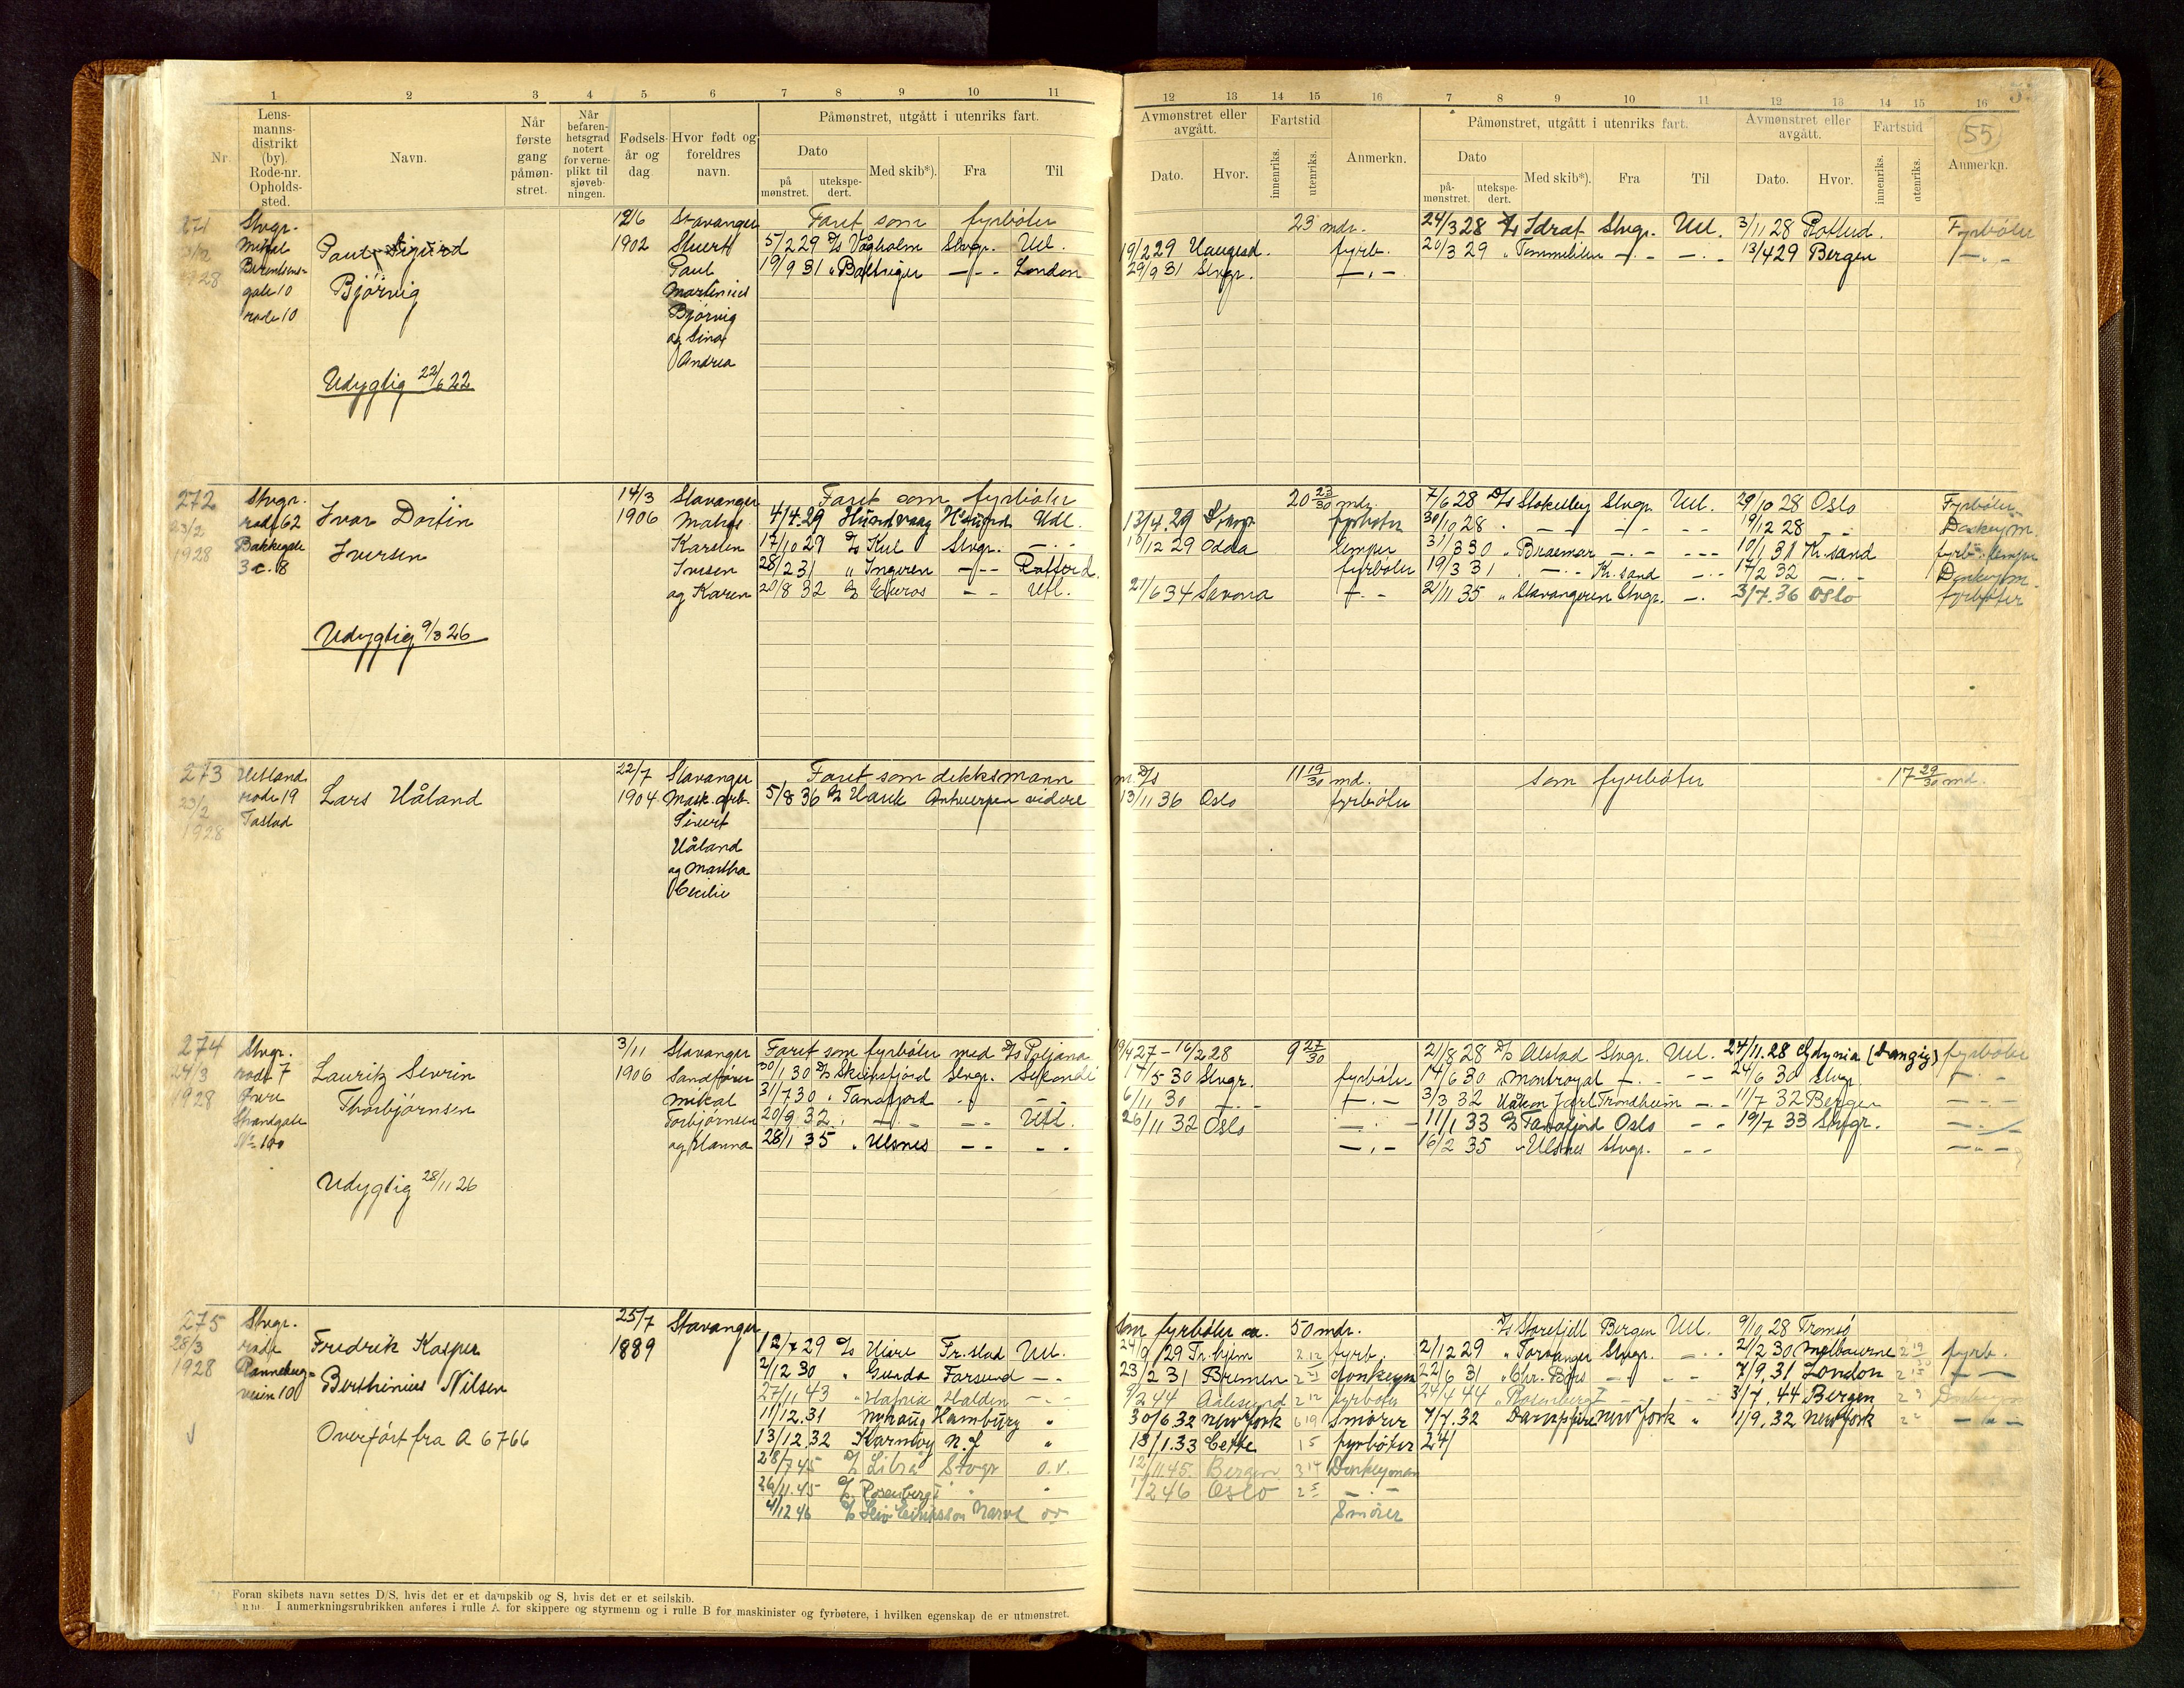 1 2 3 4 5 6 7 8 9 10 11
Nr.
Lens-
manns-
distrikt
(by)
Rode-nr.
Opholds-
sted.
Navn.
Når
første
gang
påmøn-
stret.
Når
befaren-
hetsgrad
notert
for verne-
plikt til
sjøveb-
ningen.
Fødsels-
år og
dag
Hvor født og
foreldres
navn.
Påmønstret, utgått i utenriks fart.
Dato
på
mønstret.
utekspe-
dert.
Med skib*).
Fra
Til
12 13 14 15 16 7 8 9 10 11 12 13 14 15 16
Avmønstret eller
avgått.
Dato.
Hvor.
Fartstid
innenriks.
utenriks.
Anmerkn.
Påmønstret, utgått i utenriks fart.
Dato
på-
mønstret.
utekspe-
dert.
Med skib*).
Fra
Til
Avmønstret eller
avgått.
Dato.
Hvor.
Fartstid
innenriks.
utenriks.
55
Anmerkn.
271
1928
Stvgr.
Berentsens-
gate 10
rode 10
Paul Sigurd
Bjørvig
Udygtig 22/6 22
12/6
1902
Stavanger
Stuert
Paul
Martinius
Bjørvig
og Sina
Andrea
Faret som fyrbøter 23 mdr.
5/2 29 D/s Vågholm Stvgr. Utl. 19/2 29 Haugesd. fyrb.
19/9 31 " Baltrigen -"- London 29/9 31 Stvgr. -"-
24/3 28 D/s Idræt Stvgr. Utl. 3/11 28 Fyrbøter
20/3 29 " Tommeliten -"- -"- 13/4 29 Bergen -"-
272
23/2
1928
Stvgr.
rode 62
Bakkegate
3 c. 8
Ivar Dortin
Iversen
Udygtig 9/3 26
14/3
1906
Stavanger
Matros
Karsten
Iversen
og Karen
Faret som fyrbøter 20 23/30 mdr.
4/4 29 Hundvaag H'sund Utl. 13/4 29 Stvgr. fyrbøter
17/10 29 D/s Kul Stvgr. -"- 16/12 29 Odda lemper
28/2 31 " Ingeren -"- fyrbøter
20/8 32 D/s Euros - - Utl. 21/6 34 Savona -"-
7/6 28 D/s Stokesley Stvgr. Utl. 29/10 28 Oslo Fyrbøter
30/10 28 " - - - - - - 19/12 28 - - Donkeym.
31/3 30 " Braemar -"- - - - 10/1 31 Kr.sand fyrb. lemper
19/3 31 " -"- Kr.sand -"- 17/2 32 -"- Donkeym.
21/11 35 " Stavangeren Stvgr. -"- 3/7 36 Oslo fyrbøter
273
23/2
1928
Hetland
rode 19
Tastad
Lars Håland
22/7
1904
Stavanger
Mask.arb.
Sivert
Håland
og Martha
Cecilie
Faret som dekksmann m D/s 11 19/30 md. som fyrbøter 17 29/30 md.
5/8 36 D/s Hauk Antwerpen videre 13/11 36 Oslo fyrbøter
274
24/3
1928
Stvgr.
rode 7
Øvre
Strandgate
No 100
Lauritz Sevrin
Thorbjørnsen
Udygtig 28/11 26
3/11
1906
Stavanger
Sandfører
Mikal
Torbjørnsen
og Hanna
Faret som fyrbøter med D/s Poljana 19/4 27 - 16/2 28 9 27/30
30/1 30 D/s Skiensfjord Stvgr. Sekondi 14/5 30 Stvgr. fyrbøter
31/7 30 " Tanafjord -"- - - 6/11 30 -"- -"-
20/9 32 " -"- - - Utl. 26/11 32 Oslo -"-
28/1 35 " Ulsnes - - - - -"-
21/8 28 D/s Alstad Stvgr. Utl. 24/11 28 Gdynia (Danzig) fyrbøter
14/6 30 " Montroyal -"- - - 24/6 30 Stvgr. -"-
3/3 32 Håkon Jarl Trondheim -"- 11/7 32 Bergen - - -
11/1 33 D/s Tanafjord Oslo - - 19/7 33 Stvgr. -"-
16/2 35 " Ulsnes Stvgr. - - -"-
275
28/3
1928
Stvgr.
rode
Ranneberg-
veien 10
Fredrik Kasper
Berthinius Nilsen
Overført fra A 6766
25/7
1889
Stavanger
som fyrbøter 50 mdr. D/s Storefjell Bergen Utl. 9/10 28 Tromsø
12/7 29 D/s Fr.stad Utl. 24/9 29 Tr.hjem 2 12 fyrb. 2/12 29 " Torvanger Stvgr. -"- 2/2 30 Melbourne 2 fyrb.
2/12 30 " Gunda Farsund -"- 23/2 31 Bremen 2 donkeym 22/6 31 " Chr. Børs - - 7/9 31 London 2
27/11 43 " Hafnia Halden -"- 9/2 44 Aalesund 2 12 fyrbøter 24/4 44 " Rosenberg I - - 3/7 44 Bergen 2
11/12 31 Nyhaug Hamburg " 30/6 32 New York 6 19 Smører 7/7 32 New York " 11/9 32 New York -"-
13/12 32 Karmøy N.Y " 18/1 33 Cette 1 5 fyrbøter 24/
28/7 45 D/s Libra Stvgr o.v. 12/11 45 Bergen 3 14 Donkeyman
26/11 45 D/s Rosenberg I " " 1/2 46 Oslo 2 5 -"-
4/12 46 D/s Leiv Eiriksson Narvik ov Smører
Foran skibets navn settes D/S, hvis det er et dampskib og S, hvis det er et seilskib.
Anm. I anmerkningsrubrikken anføres i rulle A for skippere og styrmenn og i rulle B for maskinister og fyrbøtere, i hvilken egenskap de er utmønstret.